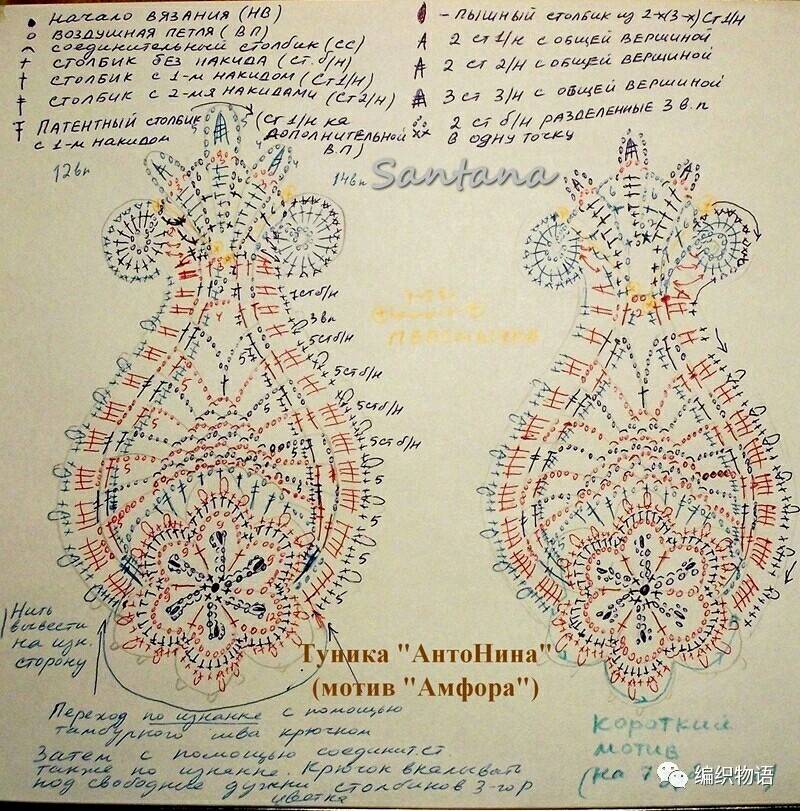 начало вязания (НВ)
воздушная петля (ВП)
соединительный столбик (СС)
столбик без накида (ст.б/н)
столбик с 1-м накидом (ст1/н)
столбик с 2-мя накидами (ст2/н)
Патентный столбик (ст1/н на
с 1-м накидом дополнительной
в.п)
- пышный столбик из 2-х(3-х)ст1/н
2 ст1/н с общей вершиной
2 ст 2/н с общей вершиной
3 ст 3/н с общей вершиной
2 ст б/н разделенные 3 в.п
в одну точку
12вп
14вп
Santana
7стб/н
3вп
5стб/н
5стб/н
5стб/н
5стб/н
перемычка
Нить
вывести
на изн.
сторону
Туника "АнтоНина"
(мотив "Амфора")
Переход по изнанке с помощью
тамбурного шва крючком
Затем с помощью соединит.ст.
также по изнанке. Крючок вкалывать
под свободные дужки столбиков 3-го р
цветка
короткий
мотив
(на 7
编织物语